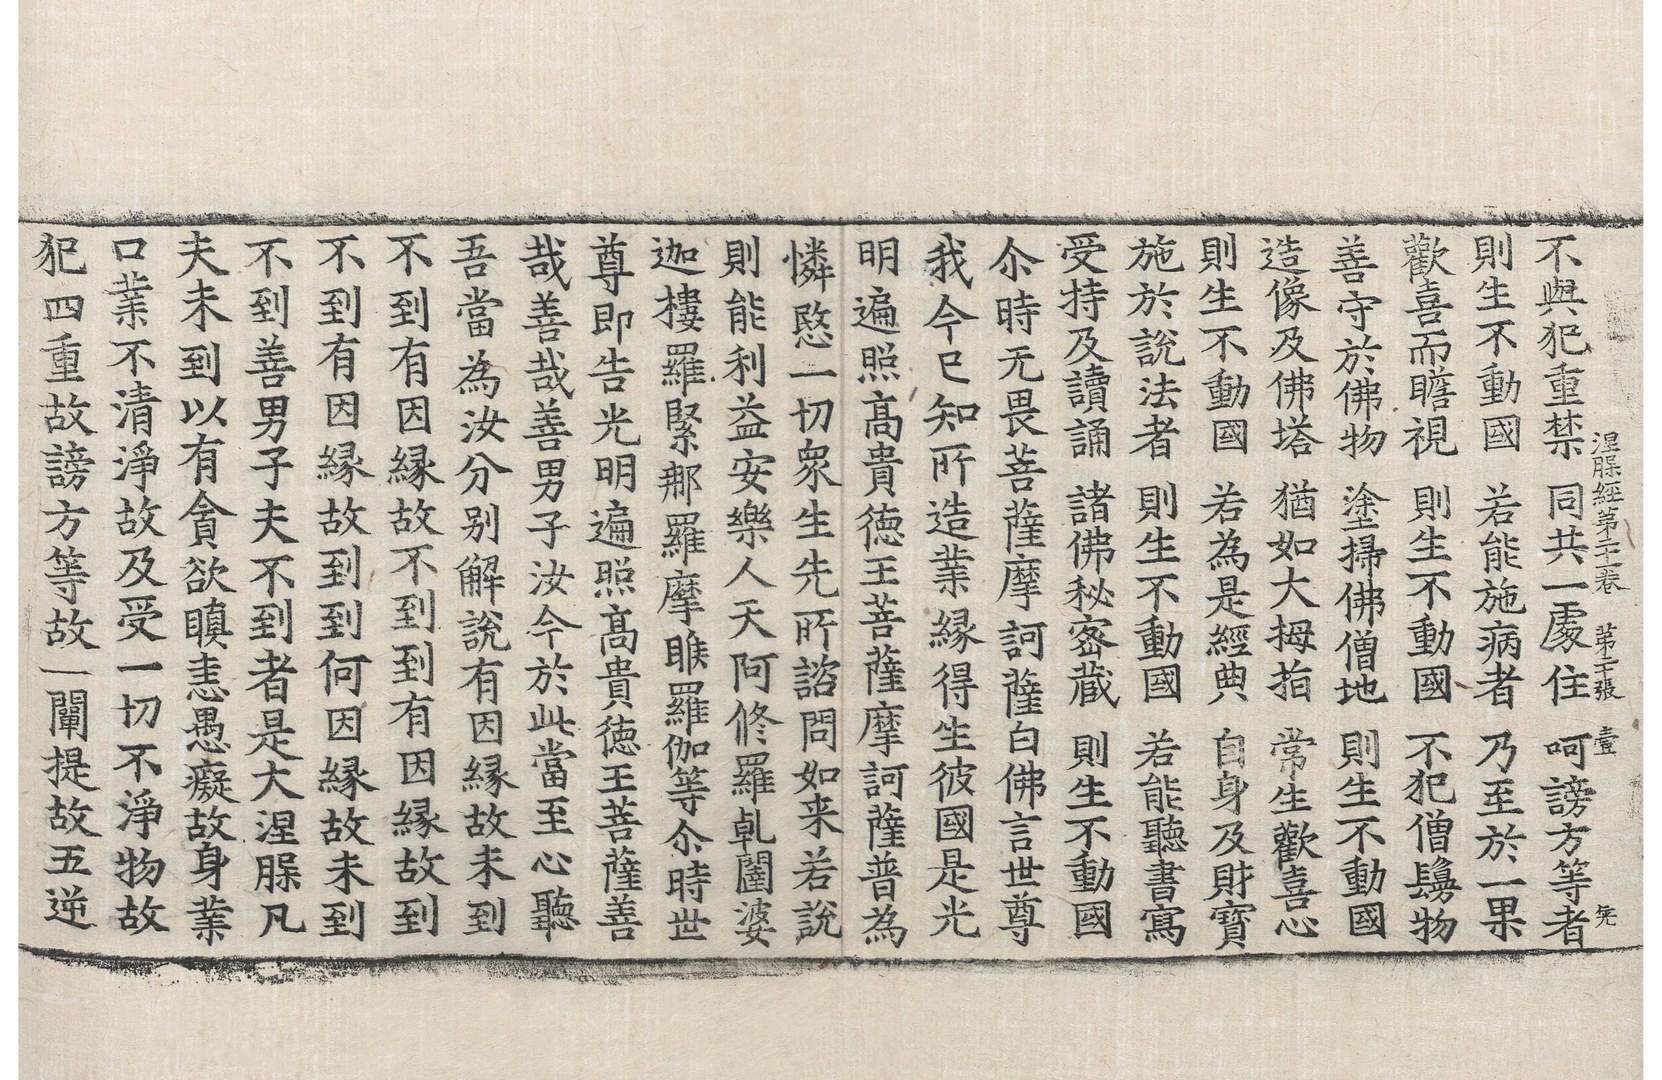 涅槃經第二十二卷 第二張 壹 𡗝
不與犯重禁 同共一處住 呵謗方等者
則生不動國 若能施病者 乃至於一果
歡喜而瞻視 則生不動國 不犯僧鬘物
善守於佛物 塗掃佛僧地 則生不動國
造像及佛塔 猶如大拇指 常生歡喜心
則生不動國 若為是經典 自身及財寶
施於說法者 則生不動國 若能聽書寫
受持及讀誦 諸佛秘密藏 則生不動國
尒時无畏菩薩摩訶薩白佛言世尊
我今已知所造業緣得生彼國是光
明遍照高貴德王菩薩摩訶薩普為
憐愍一切衆生先所諮問如来若說
則能利益安樂人天阿修羅乹闥婆
迦樓羅緊那羅摩睺羅伽等尒時世
尊即告光明遍照高貴德王菩薩善
哉善哉善男子汝今於此當至心聽
吾當為汝分别解說有因緣故未到
不到有因緣故不到到有因緣故到
不到有因緣故到到何因緣故未到
不到善男子夫不到者是大涅槃凡
夫未到以有貪欲瞋恚愚癡故身業
口業不清淨故及受一切不淨物故
犯四重故謗方等故一闡提故五逆